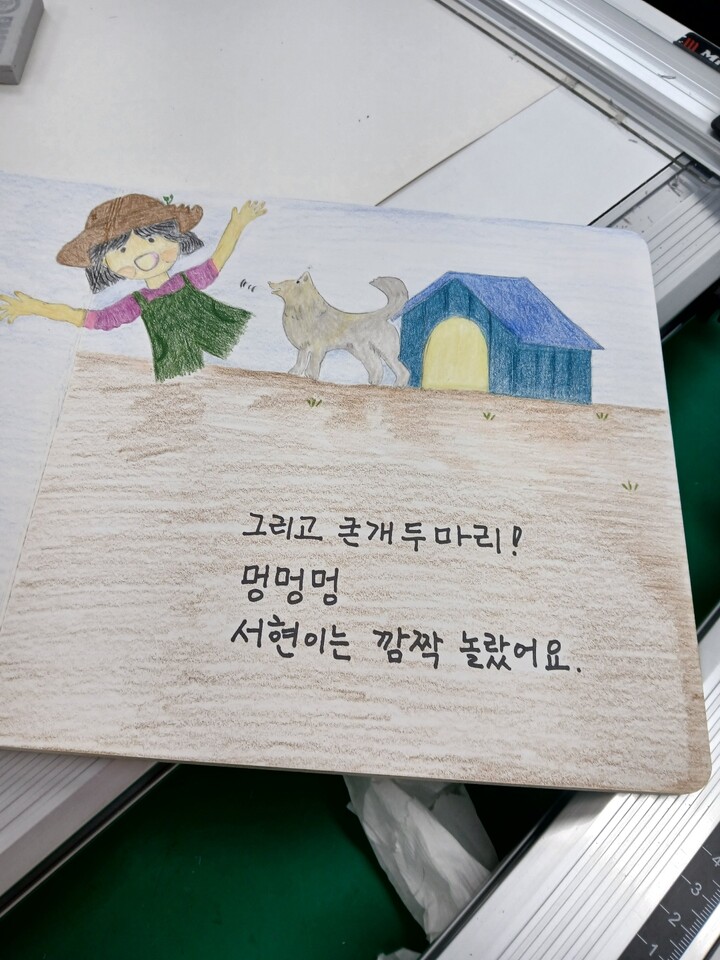 그리고 큰개 두마리!
멍멍멍
서현이는 깜짝 놀랐어요.
4
3
2
1